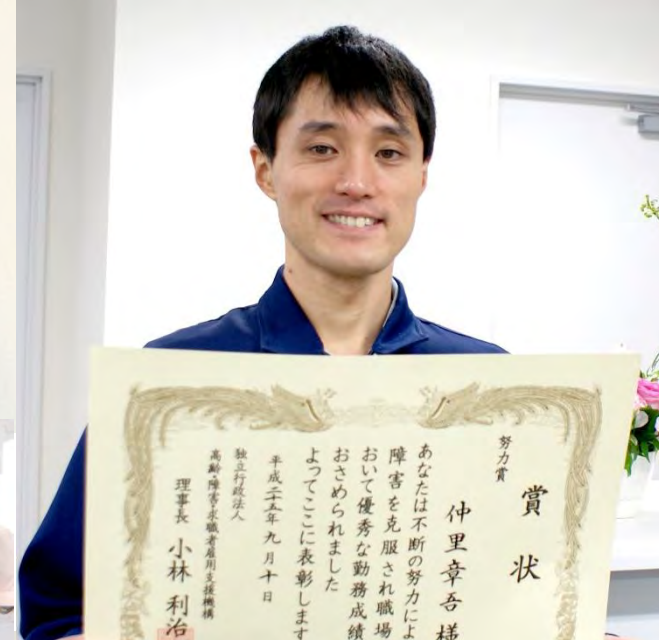 賞状
努力賞
仲里章吾様
あなたは不断の努力によ
障害を克服され職場
おいて優秀な勤務成績
おさめられました
よってここに表彰します
平成二十五年九月十日
独立行政法人
高齢・障害・求職者雇用支援機構
理事長 小林利治